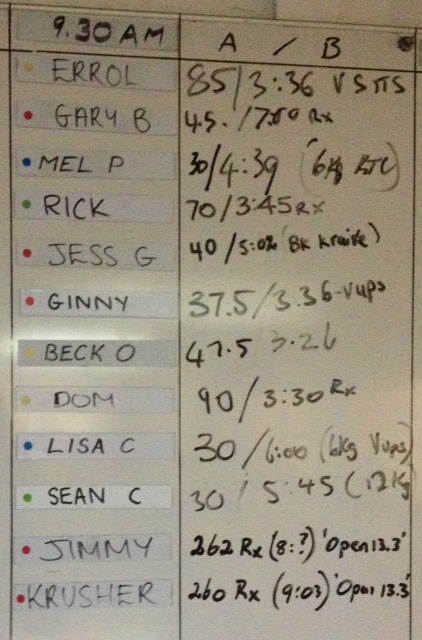 9.30 AM A / B
ERROL 85/3:36 V SITS
GARY B 4.5. / Rx
MEL P 30/4:39 (6kg KTC)
RICK 70/3:45 Rx
JESS G 40 / (8k
GINNY 37.5/3.36 -Vups
BECK O 47.5 / 3.26
DOM 90/3:30 Rx
LISA C 30 /6:00 (6kg Vups)
SEAN C 30 / 5:45 (12kg
JIMMY 262 Rx (8:?) 'Open 13.3'
KRUSHER 260 Rx (9:03) 'Open 13.3'